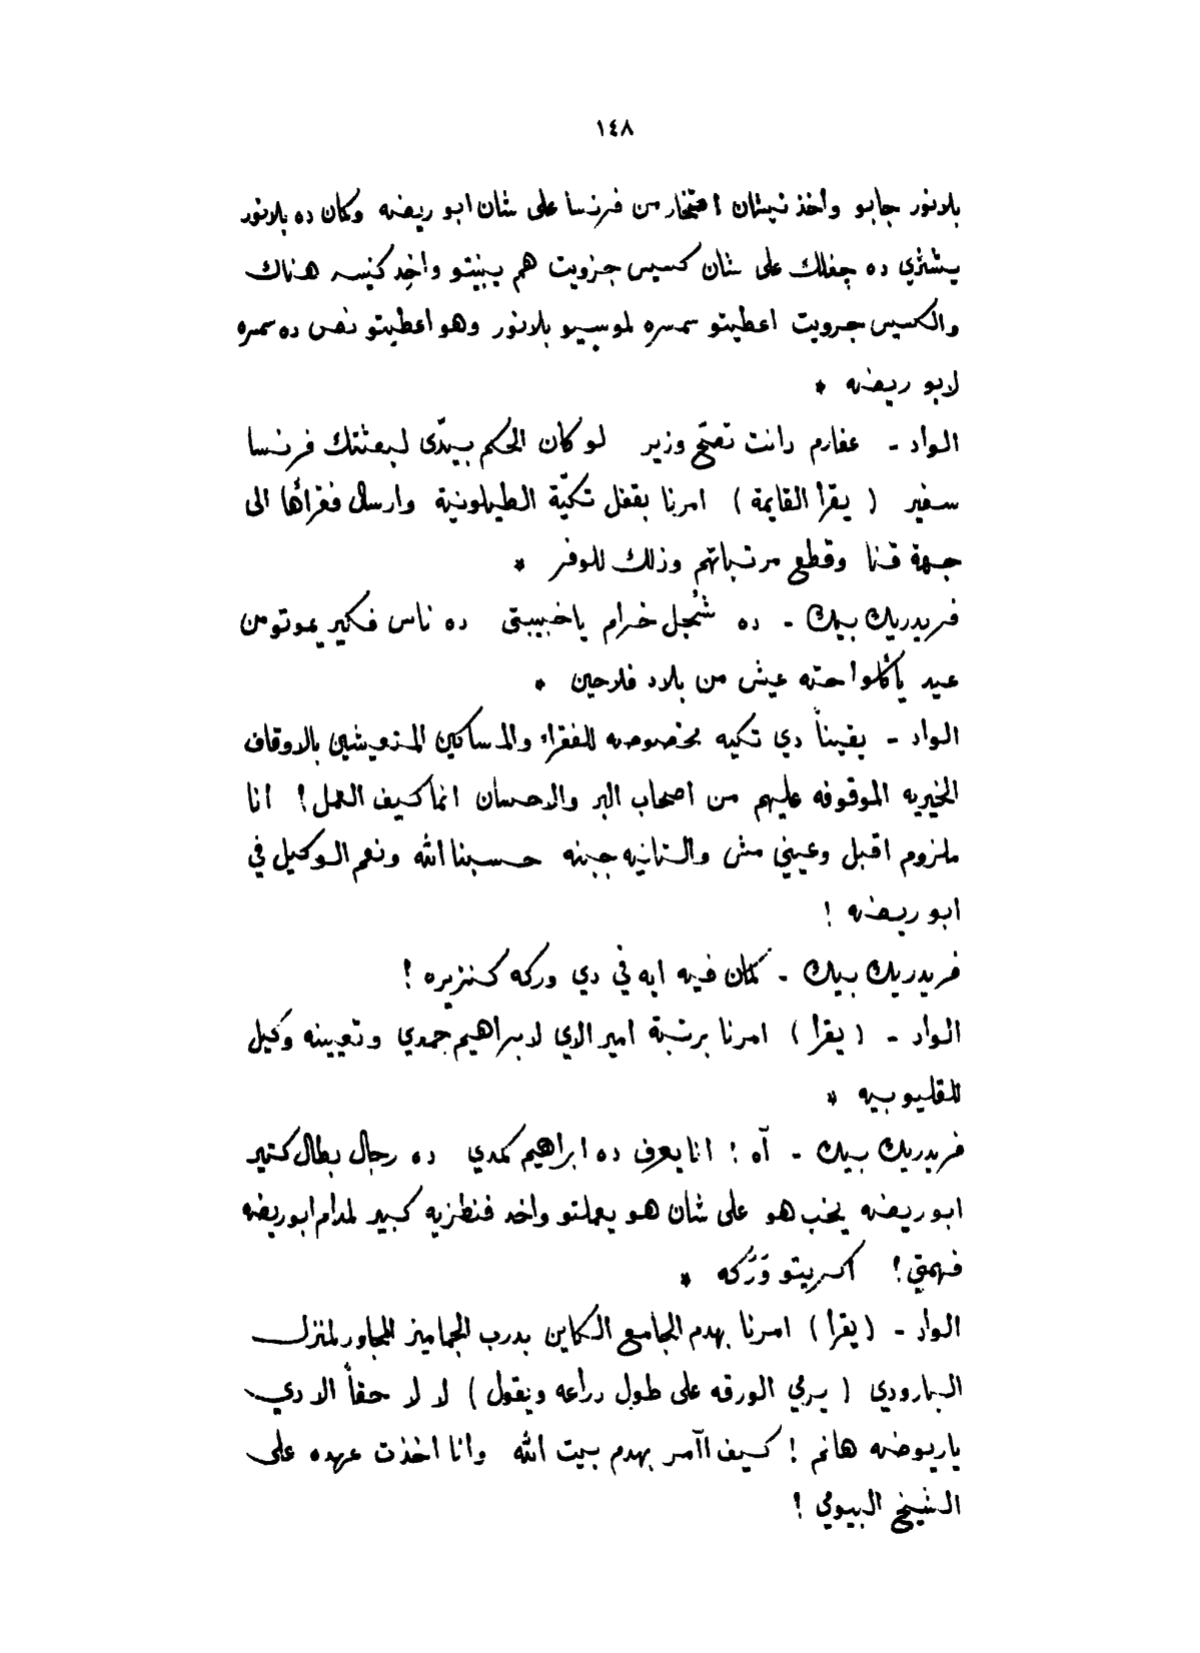 ١٤٨
بلانور جابو واخذ نيشان افتخار من فرنسا على شان ابو ريضه وكان ده بلانور
يشتري ده جفلك على شان كسيس جزويت هم يبنيتو واخد كنيسه هناك
والكسيس جرويت اعطيتو سمسره لموسيو بلانور وهو اعطيتو نص ده سمسره
لابو ريضه *
الواد - عفارم دانت تصح وزير لو كان الحكم بيدّى لبعثتك فرنسا
سفير ( يقرأ القايمة ) امرنا بقفل تكيّة الطيلونية وارسال فقرائها الى
جهة قنا وقطع مرتباتهم وذلك للوفر *
فريدريك بيك - ده شُجل خرام ياخبيبتى ده ناس فكير يموتو من
عيد يأكلوا حته عيش من بلاد فلاحين *
الواد - يقيناً دي تكيه مخصوصه للفقراء والمساكين المتعيشين بالاوقاف
الخيريه الموقوفه عليهم من اصحاب البر والاحسان انما كيف العمل ! انا
ملزوم اقبل وعيني مش والتانيه جبنه حسبنا الله ونعم الوكيل في
ابو ريضه !
فريدريك بيك - كمان فيه ايه في دي وركه كنزيره !
الواد - ( يقرا ) امرنا برتبة امير الاي لابراهيم حمدي وتعيينه وكيل
للقليوبيه *
فريدريك بيك - آه ! انا يعرف ده ابراهيم كمدي ده رجال بطال كتير
ابو ريضه يخب هو على شان هو يعملتو واخد فنطزيه كبير لمدام ابو ريضه
فهمتي ! اكريتو وَرَكه *
الواد - ( يقرا ) امرنا بهدم الجامع الكاين بدرب الجماميز المجاور لمنزل
البارودي ( يرمي الورقه على طول دراعه ويقول ) لا لا حقاً الا دي
ياريوضه هانم ! كيف اآمر بهدم بيت الله وانا اخذت عهده على
الشيخ البيومي !